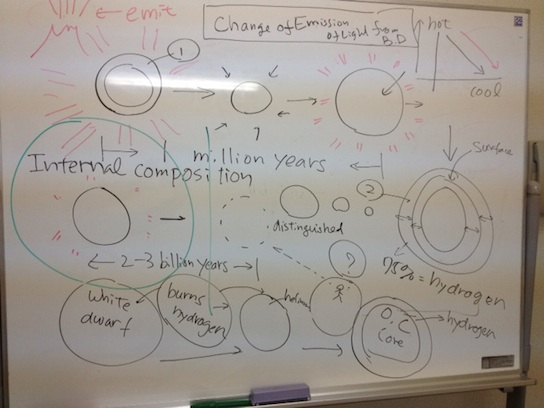 ← emit
Change of Emission
of Light from
B.D
hot
cool
1
?
million years
Surface
Internal composition
2
distinguished
?
← 2-3 billion years →
75% = hydrogen
white
dwarf
burns
hydrogen
O, C
core
hydrogen